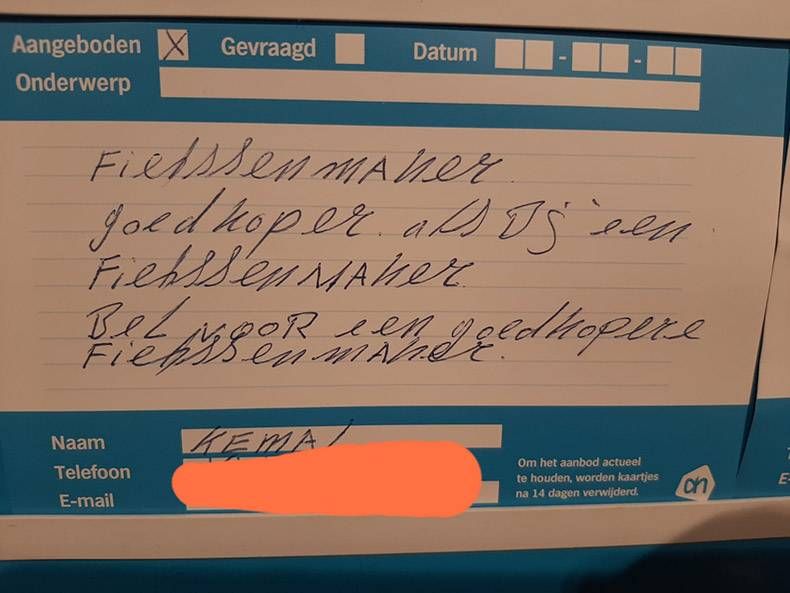 Aangeboden X Gevraagd Datum - -
Onderwerp
Fietssenmaker
goedkoper. als Bij een
Fietssenmaker
Bel voor een goedkopere
Fietssenmaker.
Naam KEMAL
Telefoon
E-mail
Om het aanbod actueel
te houden, worden kaartjes
na 14 dagen verwijderd.
ah
E-